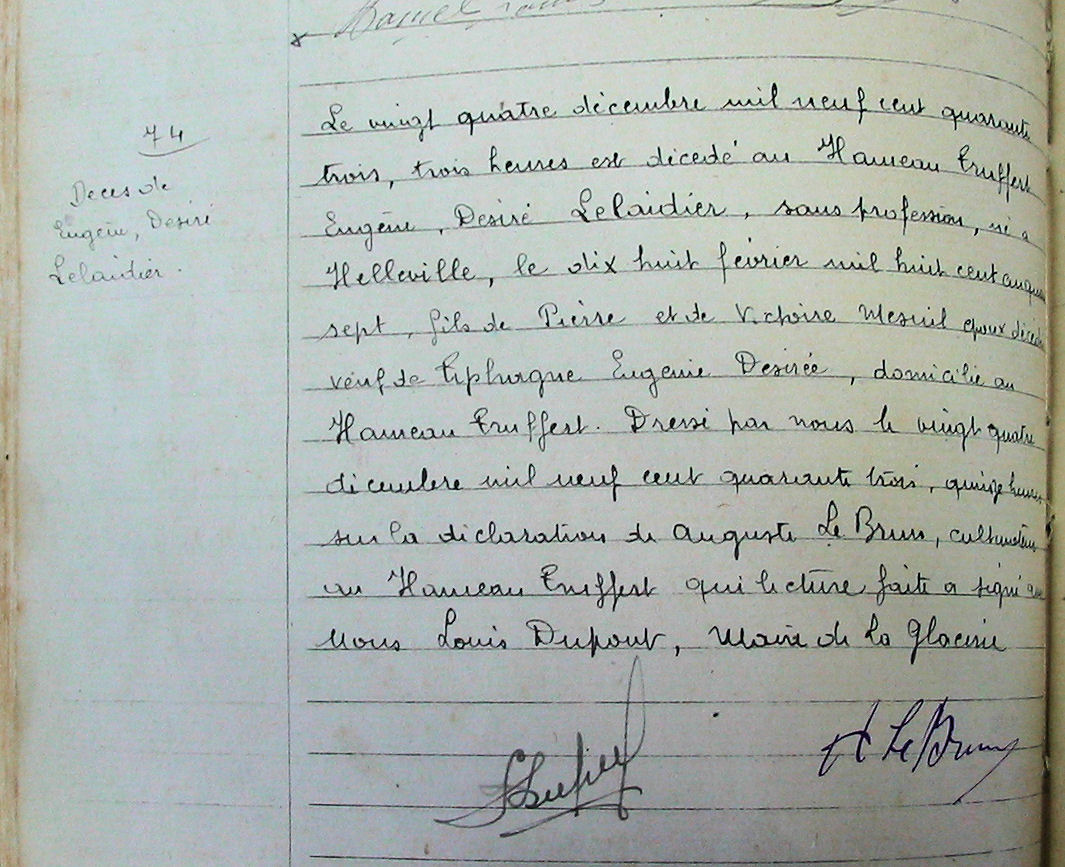 74
Deces de
Eugène, Desiré
Lelaidier.
Le vingt quatre décembre mil neuf cent quarante
trois, trois heures est décedé au Hameau Truffert
Eugène, Desiré Lelaidier, sans profession, né a
Helleville, le dix huit février mil huit cent cinquante
sept, fils de Pierre et de Victoire Mesnil epoux décédés
veuf de Eugenie Desirée, domicilié au
Hameau Truffert. Dressé par nous le vingt quatre
décembre mil neuf cent quarante trois, quinze heures
sur la déclaration de Auguste Le Brun, cultivateur
au Hameau Truffert qui lecture faite a signé avec
Nous Louis Dupont, Maire de la Glacerie
A Le Brun